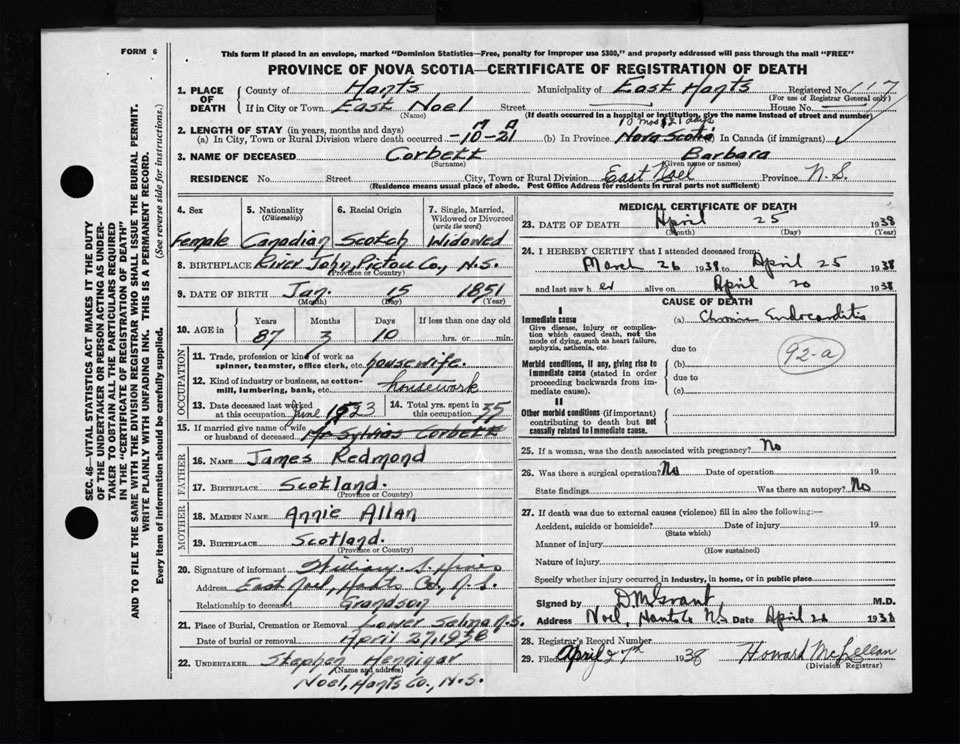 FORM 6
This form if placed in an envelope, marked "Dominion Statistics—Free, penalty for improper use $300," and properly addressed will pass through the mail "FREE"
PROVINCE OF NOVA SCOTIA—CERTIFICATE OF REGISTRATION OF DEATH
SEC. 46—VITAL STATISTICS ACT MAKES IT THE DUTY
OF THE UNDERTAKER OR PERSON ACTING AS UNDER-
TAKER TO OBTAIN ALL THE PARTICULARS REQUIRED
IN THE "CERTIFICATE OF REGISTRATION OF DEATH"
AND TO FILE THE SAME WITH THE DIVISION REGISTRAR WHO SHALL ISSUE THE BURIAL PERMIT.
WRITE PLAINLY WITH UNFADING INK. THIS IS A PERMANENT RECORD.
Every item of information should be carefully supplied. (See reverse side for instructions.)
1. PLACE OF DEATH County of Hants Municipality of East Hants Registered No. 117
(For use of Registrar General only)
If in City or Town East Noel Street House No.
(Name) (If death occurred in a hospital or institution, give the name instead of street and number)
2. LENGTH OF STAY (in years, months and days) 10 mos 21 days
(a) In City, Town or Rural Division where death occurred -10-21 (b) In Province Nova Scotia (c) In Canada (if immigrant)
M D
3. NAME OF DECEASED Corbett Barbara
(Surname) (Given name or names)
RESIDENCE No. Street City, Town or Rural Division East Noel Province N.S.
(Residence means usual place of abode. Post Office Address for residents in rural parts not sufficient)
4. Sex 5. Nationality (Citizenship) 6. Racial Origin 7. Single, Married, Widowed or Divorced (write the word)
Female Canadian Scotch Widowed
8. BIRTHPLACE River John, Pictou Co., N.S.
(Province or Country)
9. DATE OF BIRTH Jan. 15 1851
(Month) (Day) (Year)
10. AGE in Years Months Days If less than one day old
87 3 10 hrs. or min.
OCCUPATION
11. Trade, profession or kind of work as spinner, teamster, office clerk, etc. housewife.
12. Kind of industry or business, as cotton-mill, lumbering, bank, etc. housework
13. Date deceased last worked at this occupation June 1923 14. Total yrs. spent in this occupation 35
15. If married give name of wife or husband of deceased Mr Sylvias Corbett
FATHER
16. NAME James Redmond
17. BIRTHPLACE Scotland.
(Province or Country)
MOTHER
18. MAIDEN NAME Annie Allan
19. BIRTHPLACE Scotland.
(Province or Country)
20. Signature of informant William S. Hines
Address East Noel, Hants Co., N.S.
Relationship to deceased Grandson
21. Place of Burial, Cremation or Removal Lower Selma N.S.
Date of burial or removal April 27, 1938
22. UNDERTAKER Stephen Hennigar
(Name and address)
Noel, Hants Co., N.S.
MEDICAL CERTIFICATE OF DEATH
23. DATE OF DEATH April 25 1938
(Month) (Day) (Year)
24. I HEREBY CERTIFY that I attended deceased from
March 26 1938 to April 25 1938
and last saw her alive on April 20 1938
CAUSE OF DEATH
I
Immediate cause (a) Chronic Endocarditis
Give disease, injury or complication which caused death, not the mode of dying, such as heart failure, asphyxia, asthenia, etc.
due to 92-a
Morbid conditions, if any, giving rise to immediate cause (stated in order proceeding backwards from immediate cause).
(b)
due to
(c)
II
Other morbid conditions (if important) contributing to death but not causally related to immediate cause.
25. If a woman, was the death associated with pregnancy? No
26. Was there a surgical operation? No Date of operation 19
State findings Was there an autopsy? No
27. If death was due to external causes (violence) fill in also the following:—
Accident, suicide or homicide? Date of injury 19
(State which)
Manner of injury
(How sustained)
Nature of injury
Specify whether injury occurred in industry, in home, or in public place
Signed by D McGrant M.D.
Address Noel, Hants Co N.S. Date April 26 1938
28. Registrar's Record Number
29. Filed April 27th 1938 Howard McLellan
(Division Registrar)